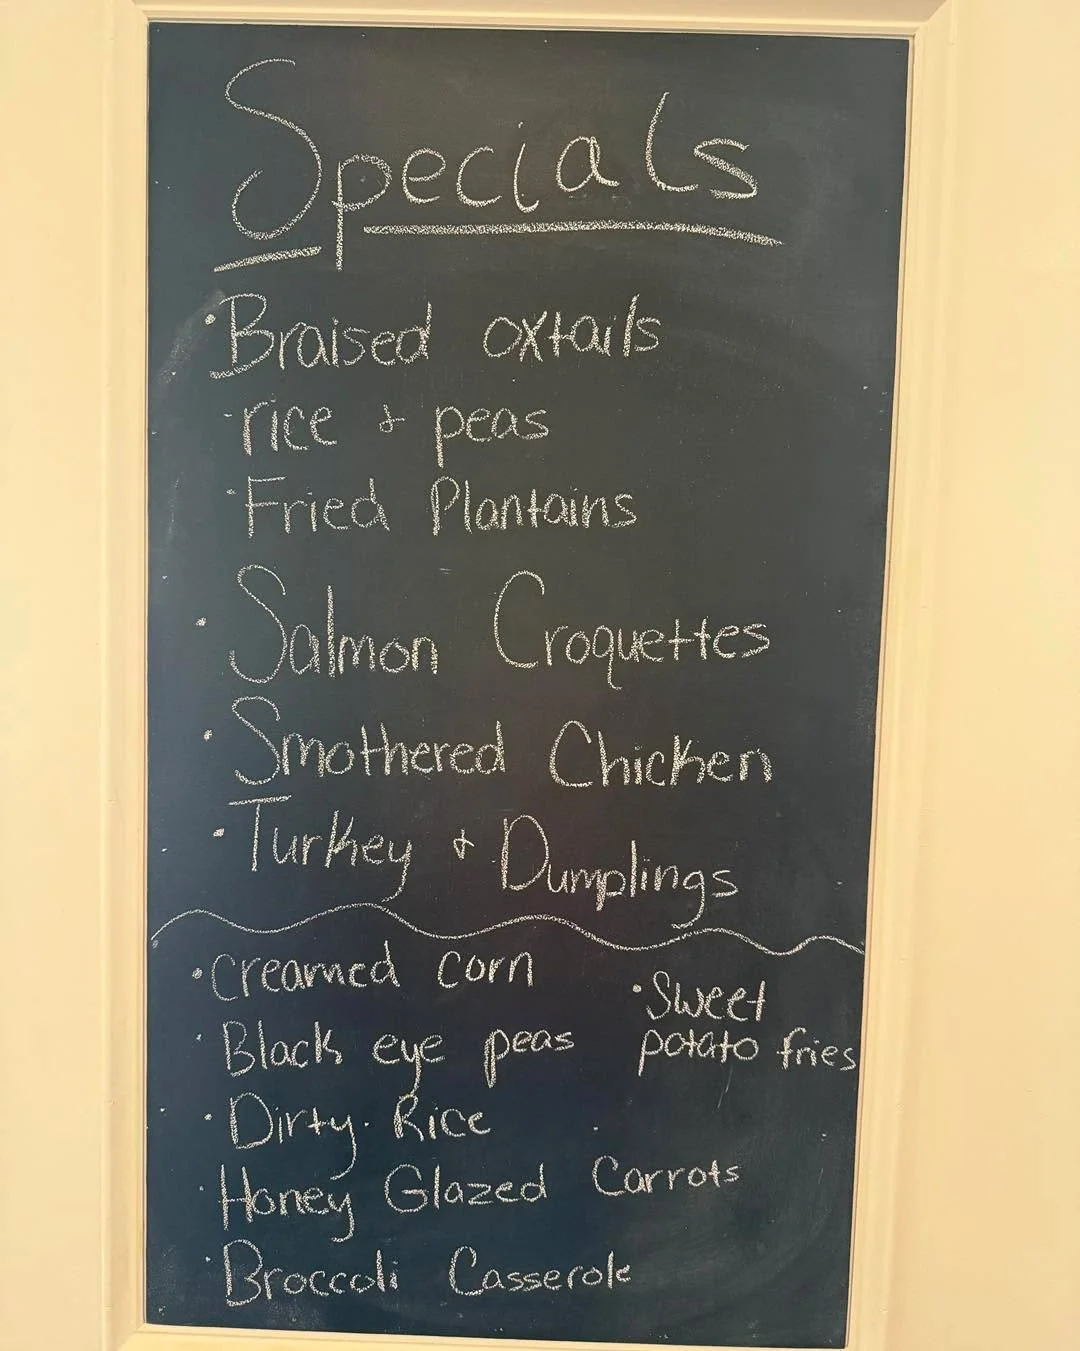 Specials
• Braised oxtails
- rice & peas
• Fried Plantains
• Salmon Croquettes
• Smothered Chicken
• Turkey & Dumplings
• Creamed corn
• Sweet
potato fries
• Black eye peas
• Dirty Rice
• Honey Glazed Carrots
• Broccoli Casserole